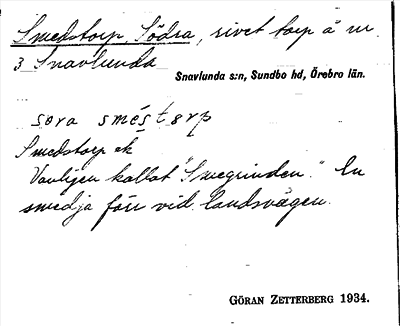 Smedstorp, Södra, rivet torp å nr
3 Snavlunda
Snavlunda s:n, Sundbo hd, Örebro län.
sora smés̲tɘrp
Smedstorp ek
Vanligen kallat "Smegrinden." En
smedja förr vid landsvägen.
GÖRAN ZETTERBERG 1934.